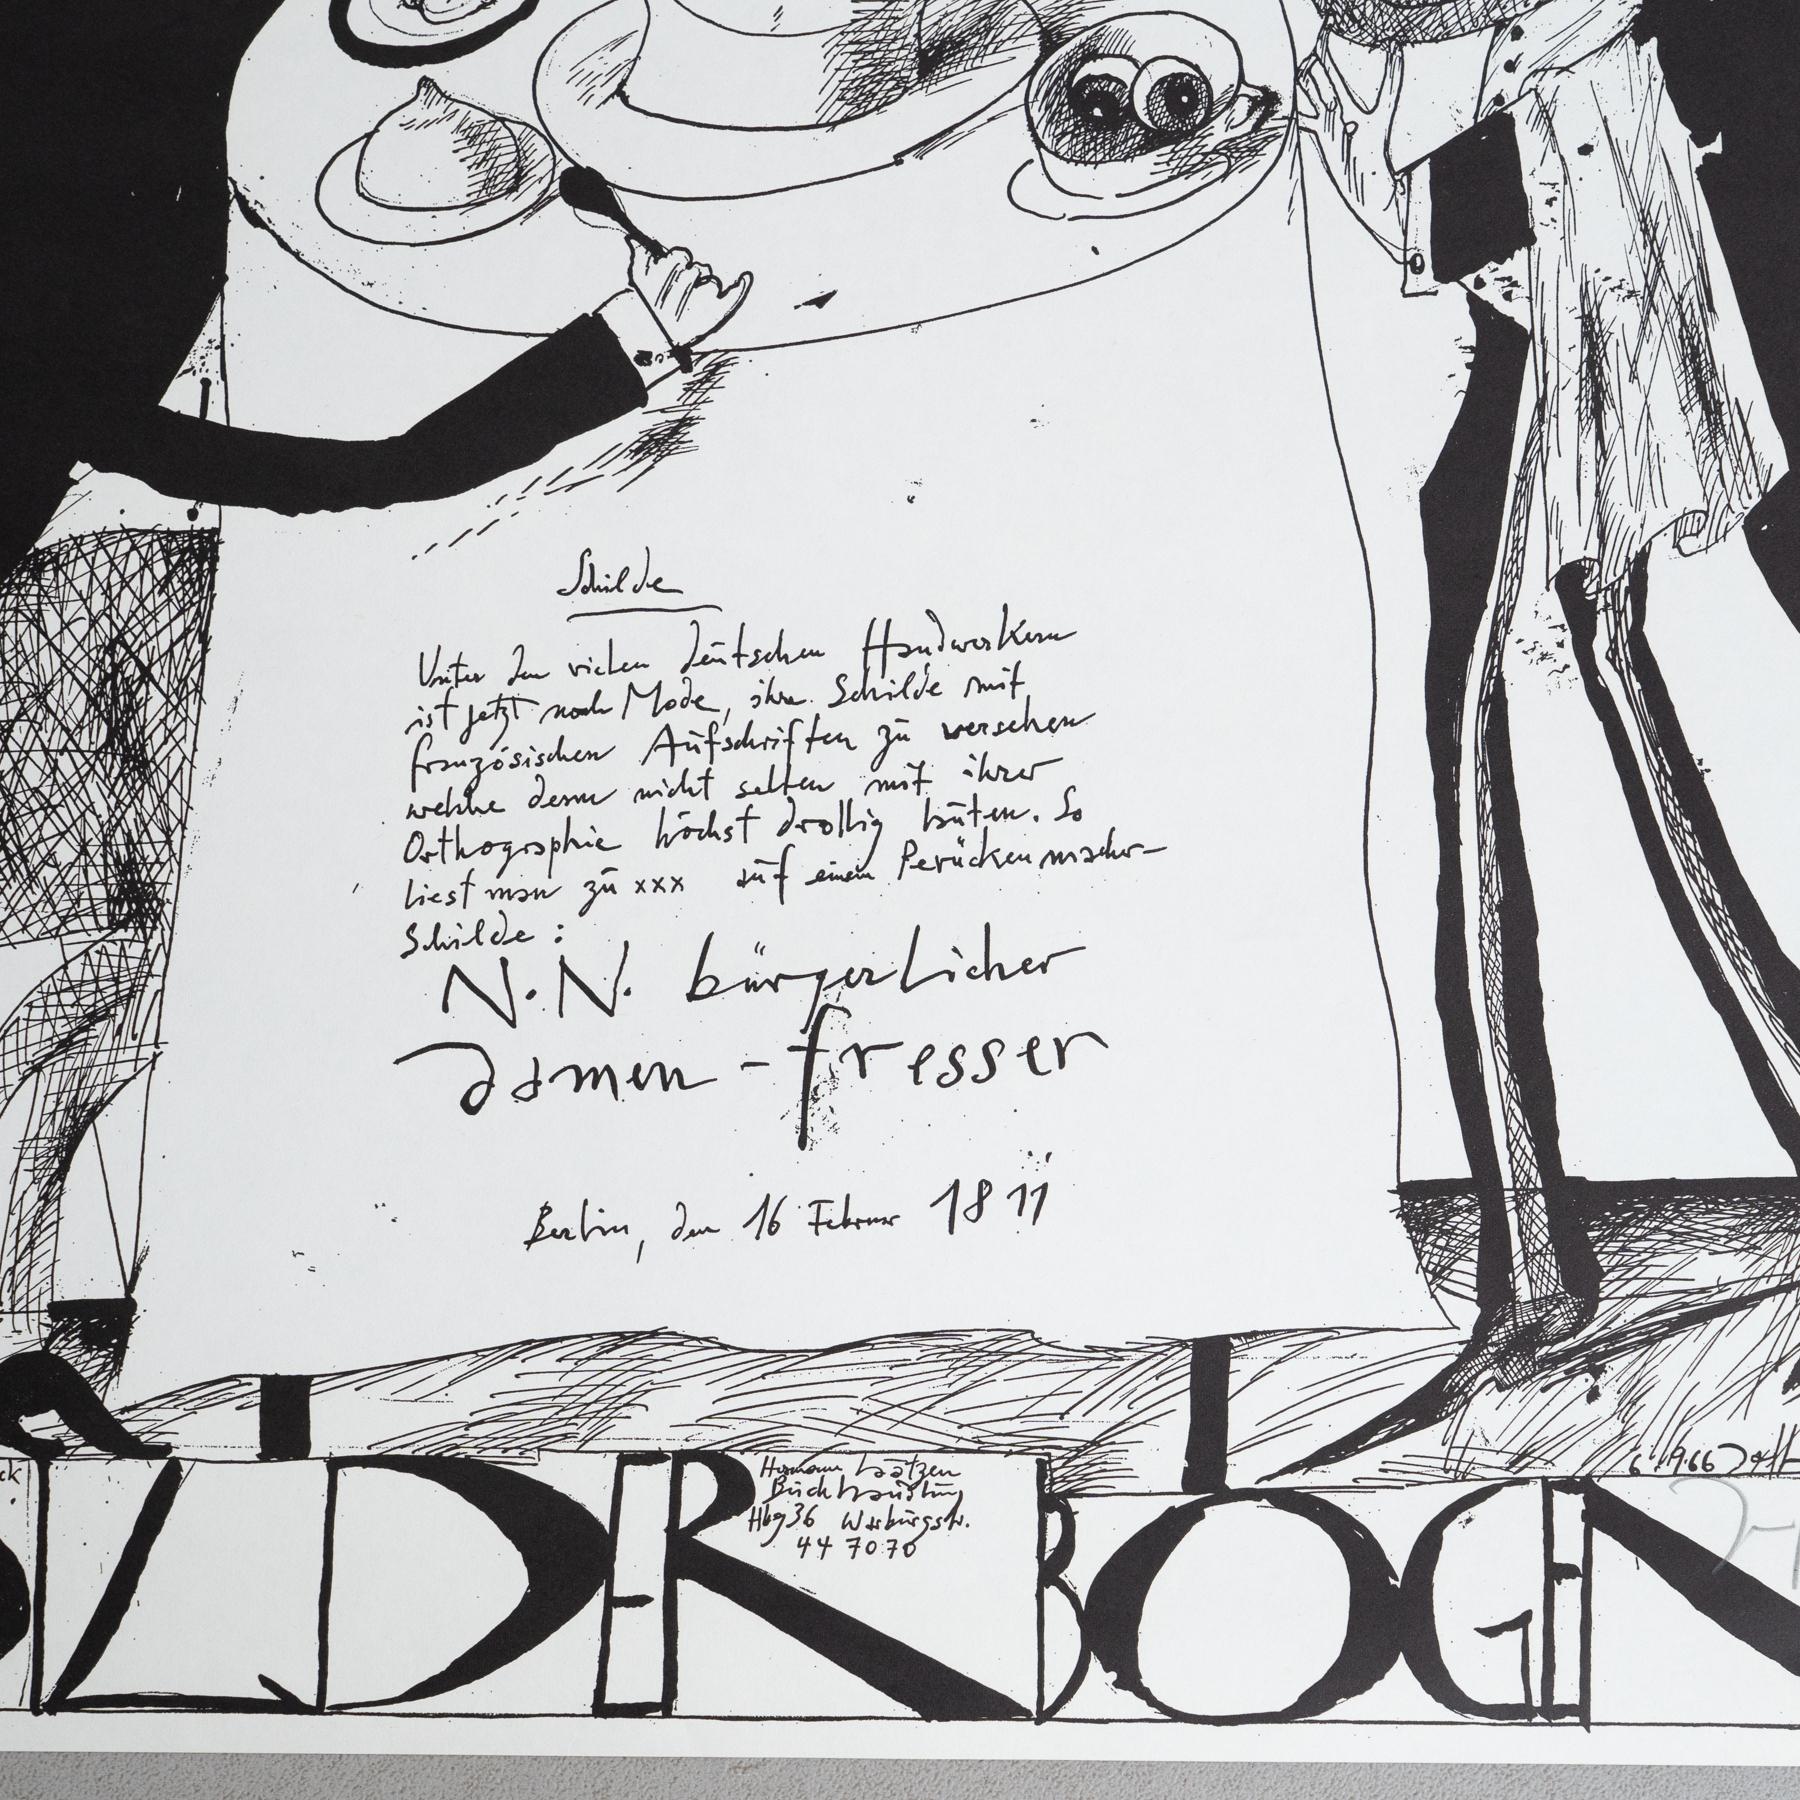 Schilde
Unter den vielen deutschen Handwerkern
ist jetzt noch Mode, ihre Schilde mit
französischen Aufschriften zu versehen
welche denn nicht selten mit ihrer
Orthographie höchst drollig lauten. So
liest man zu xxx auf einem Perückenmacher-
Schilde:
N.N. bürgerlicher
damen-fresser
Berlin, den 16 Februar 1811
6 19.66
Hermann Laatzen
Buchhandlung
Hbg 36 Warburgstr.
44 70 70
BILDERBOGEN